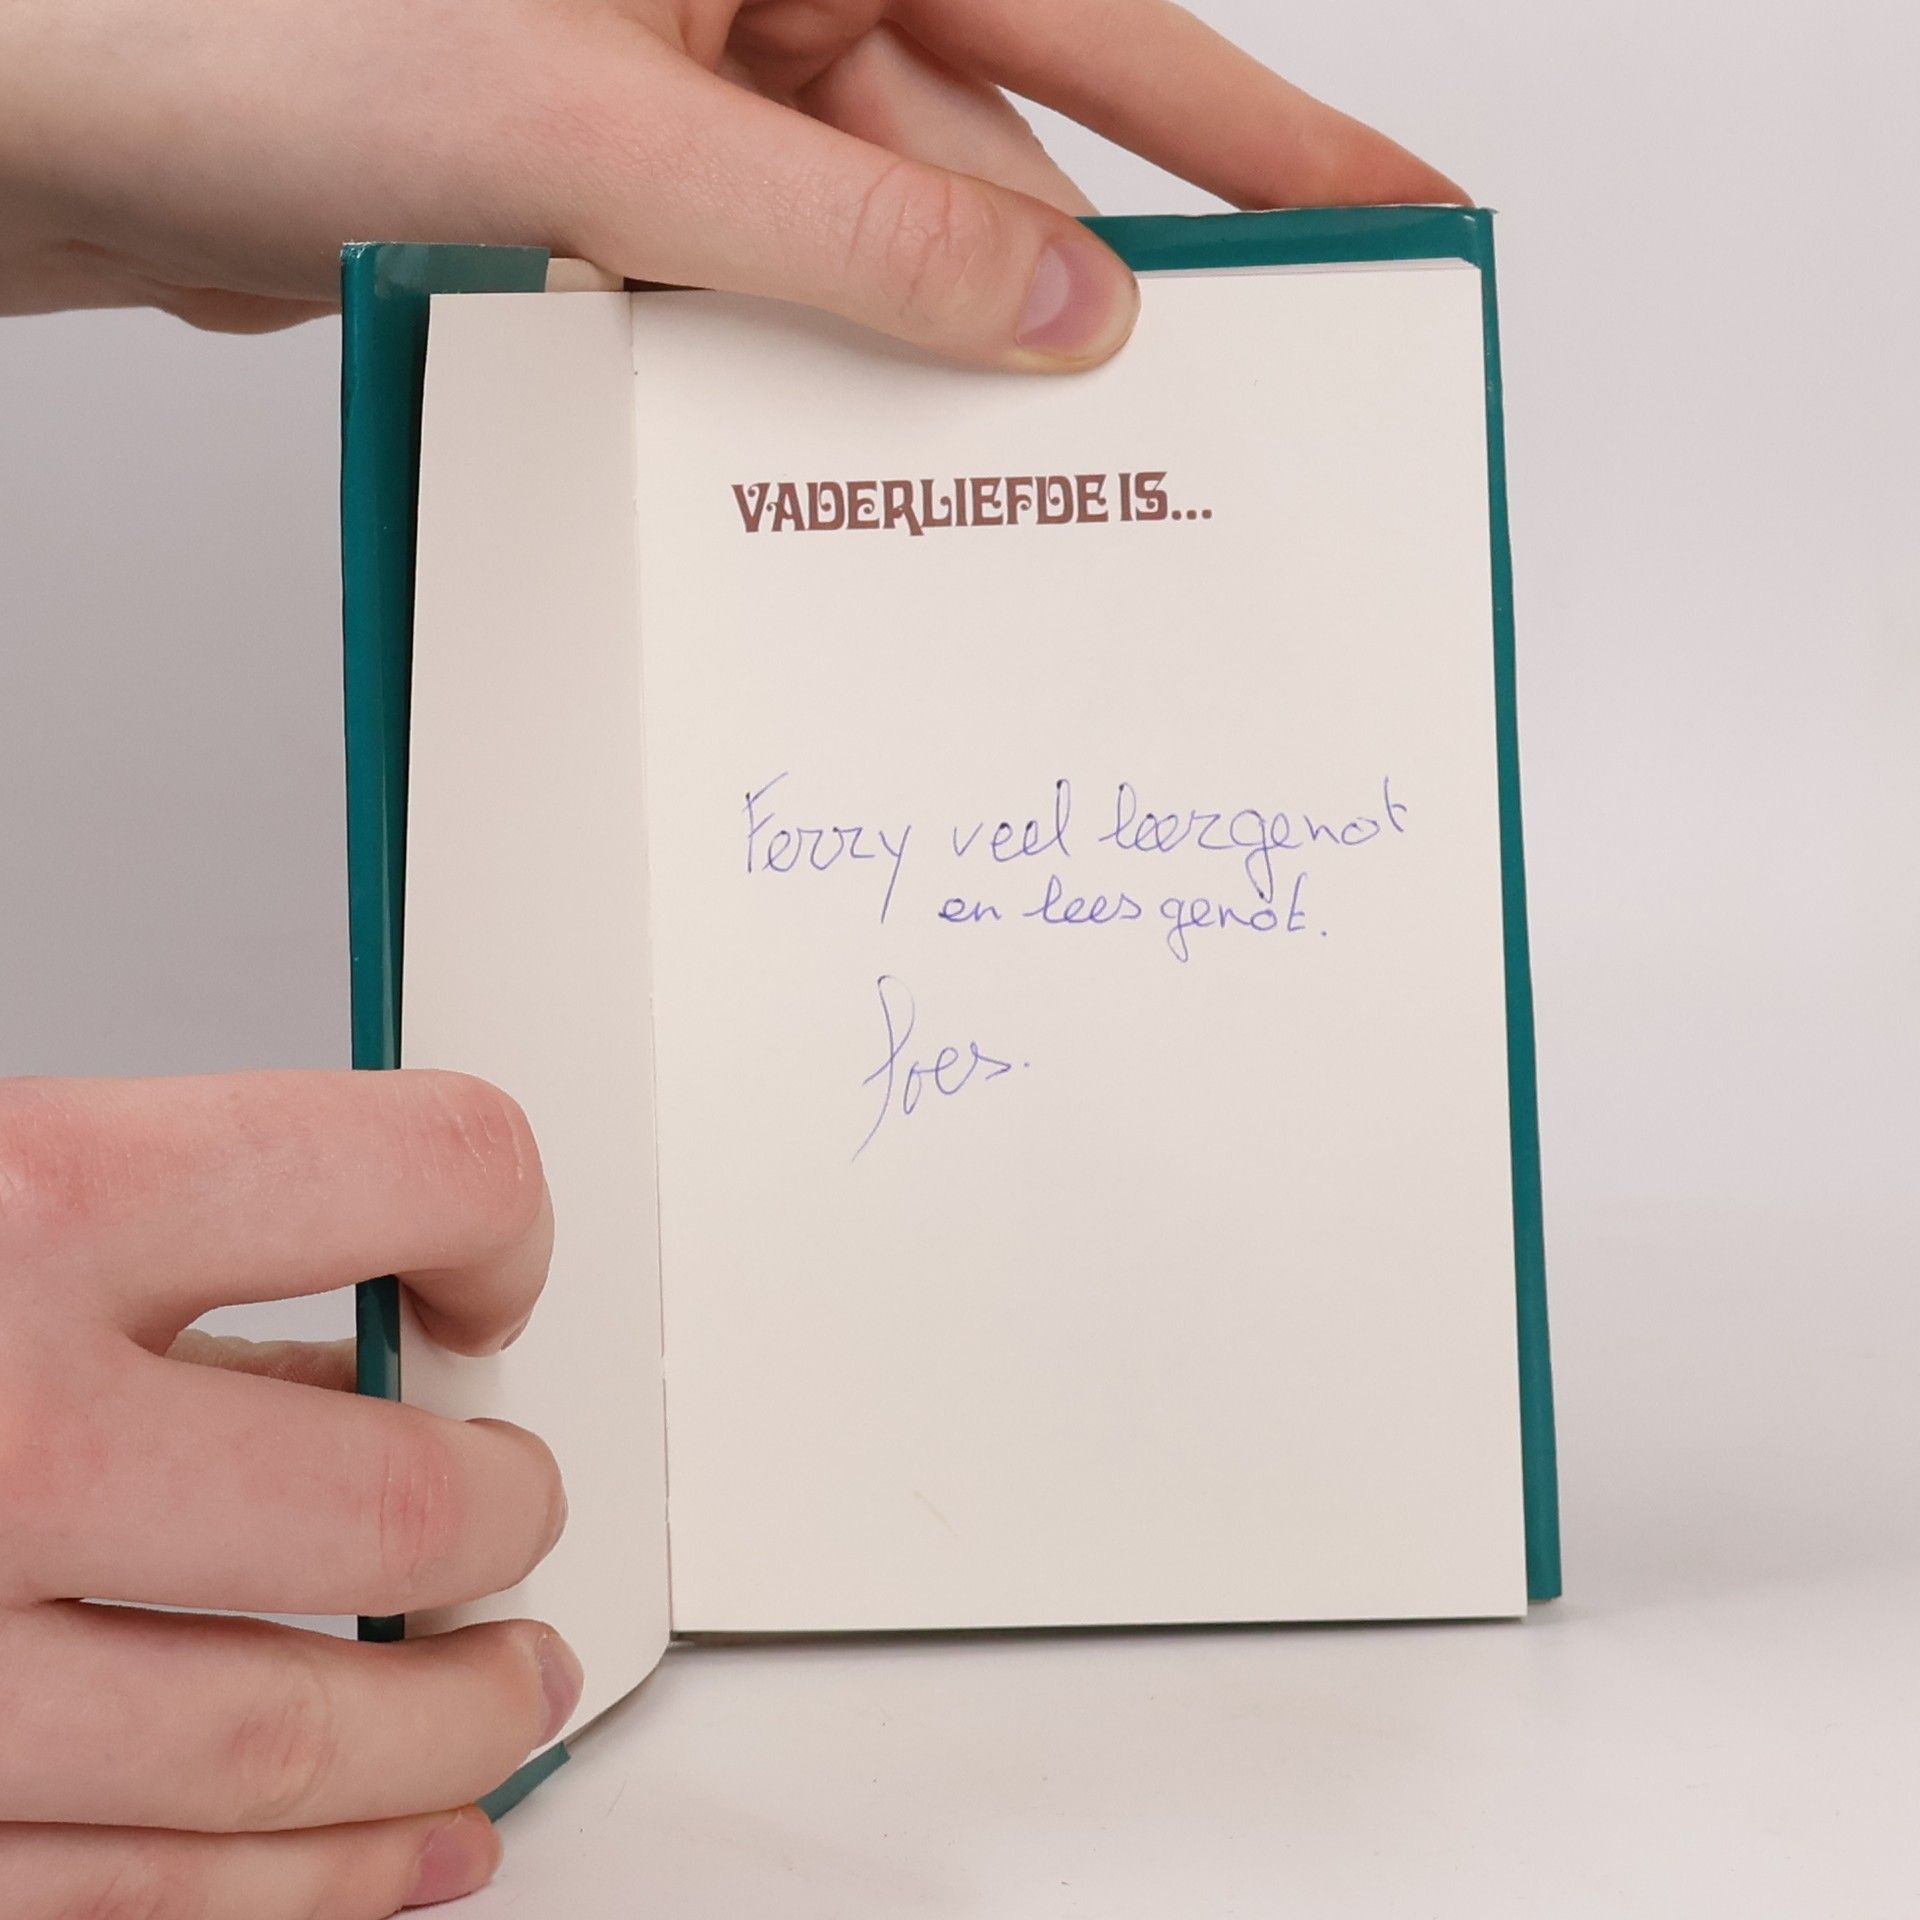 VADERLIEFDE IS...
Ferry veel leergenot
en lees genot.
Poes.